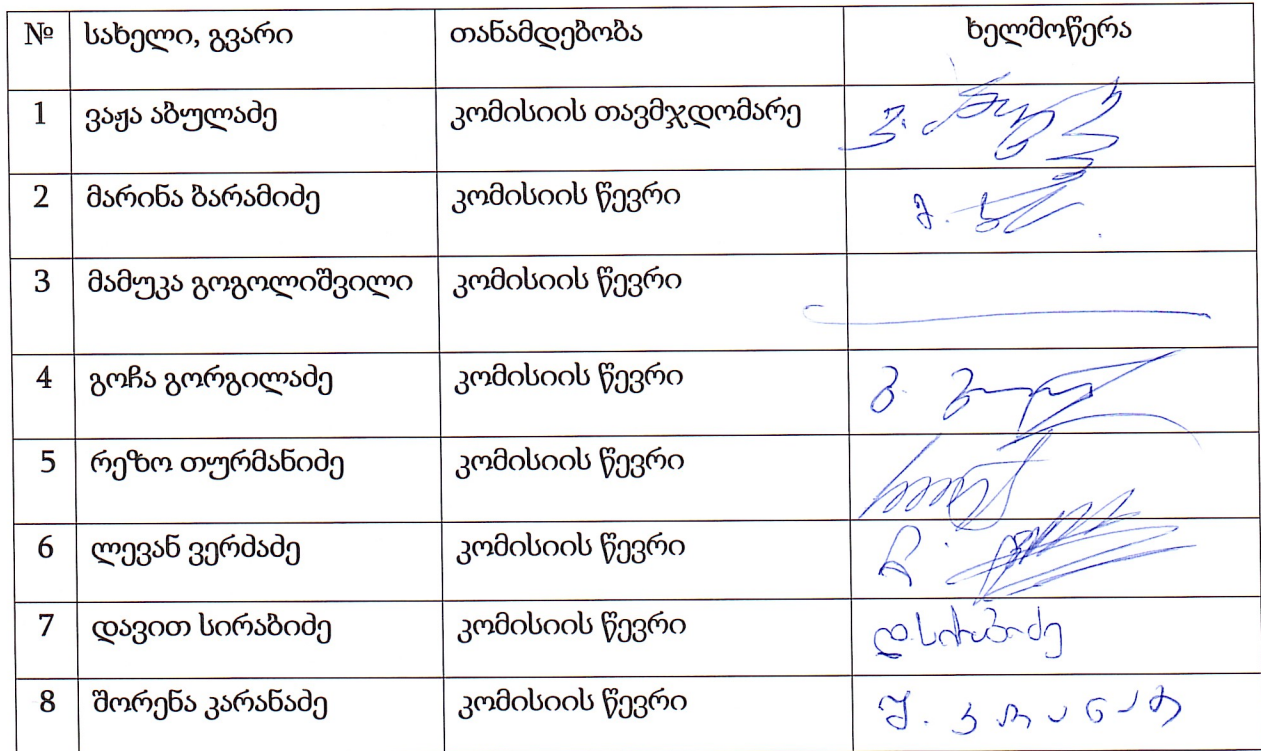 № სახელი, გვარი თანამდებობა ხელმოწერა
1 ვაჟა აბულაძე კომისიის თავმჯდომარე
2 მარინა ბარამიძე კომისიის წევრი
3 მამუკა გოგოლიშვილი კომისიის წევრი
4 გოჩა გორგილაძე კომისიის წევრი
5 რეზო თურმანიძე კომისიის წევრი
6 ლევან ვერძაძე კომისიის წევრი
7 დავით სირაბიძე კომისიის წევრი დ.სირაბიძე
8 შორენა კარანაძე კომისიის წევრი